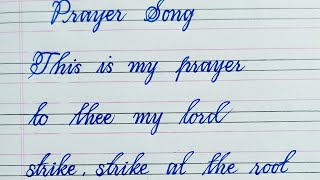 Prayer Song
This is my prayer
to thee my lord
strike, strike at the root